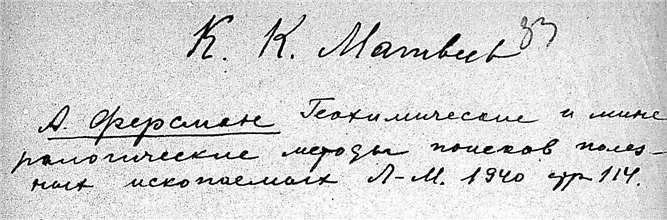 К. К. Матвеев 33
А. Ферсман Геохимические и мине
ралогические методы поисков полез-
ных ископаемых Л-М. 1940 стр 114.